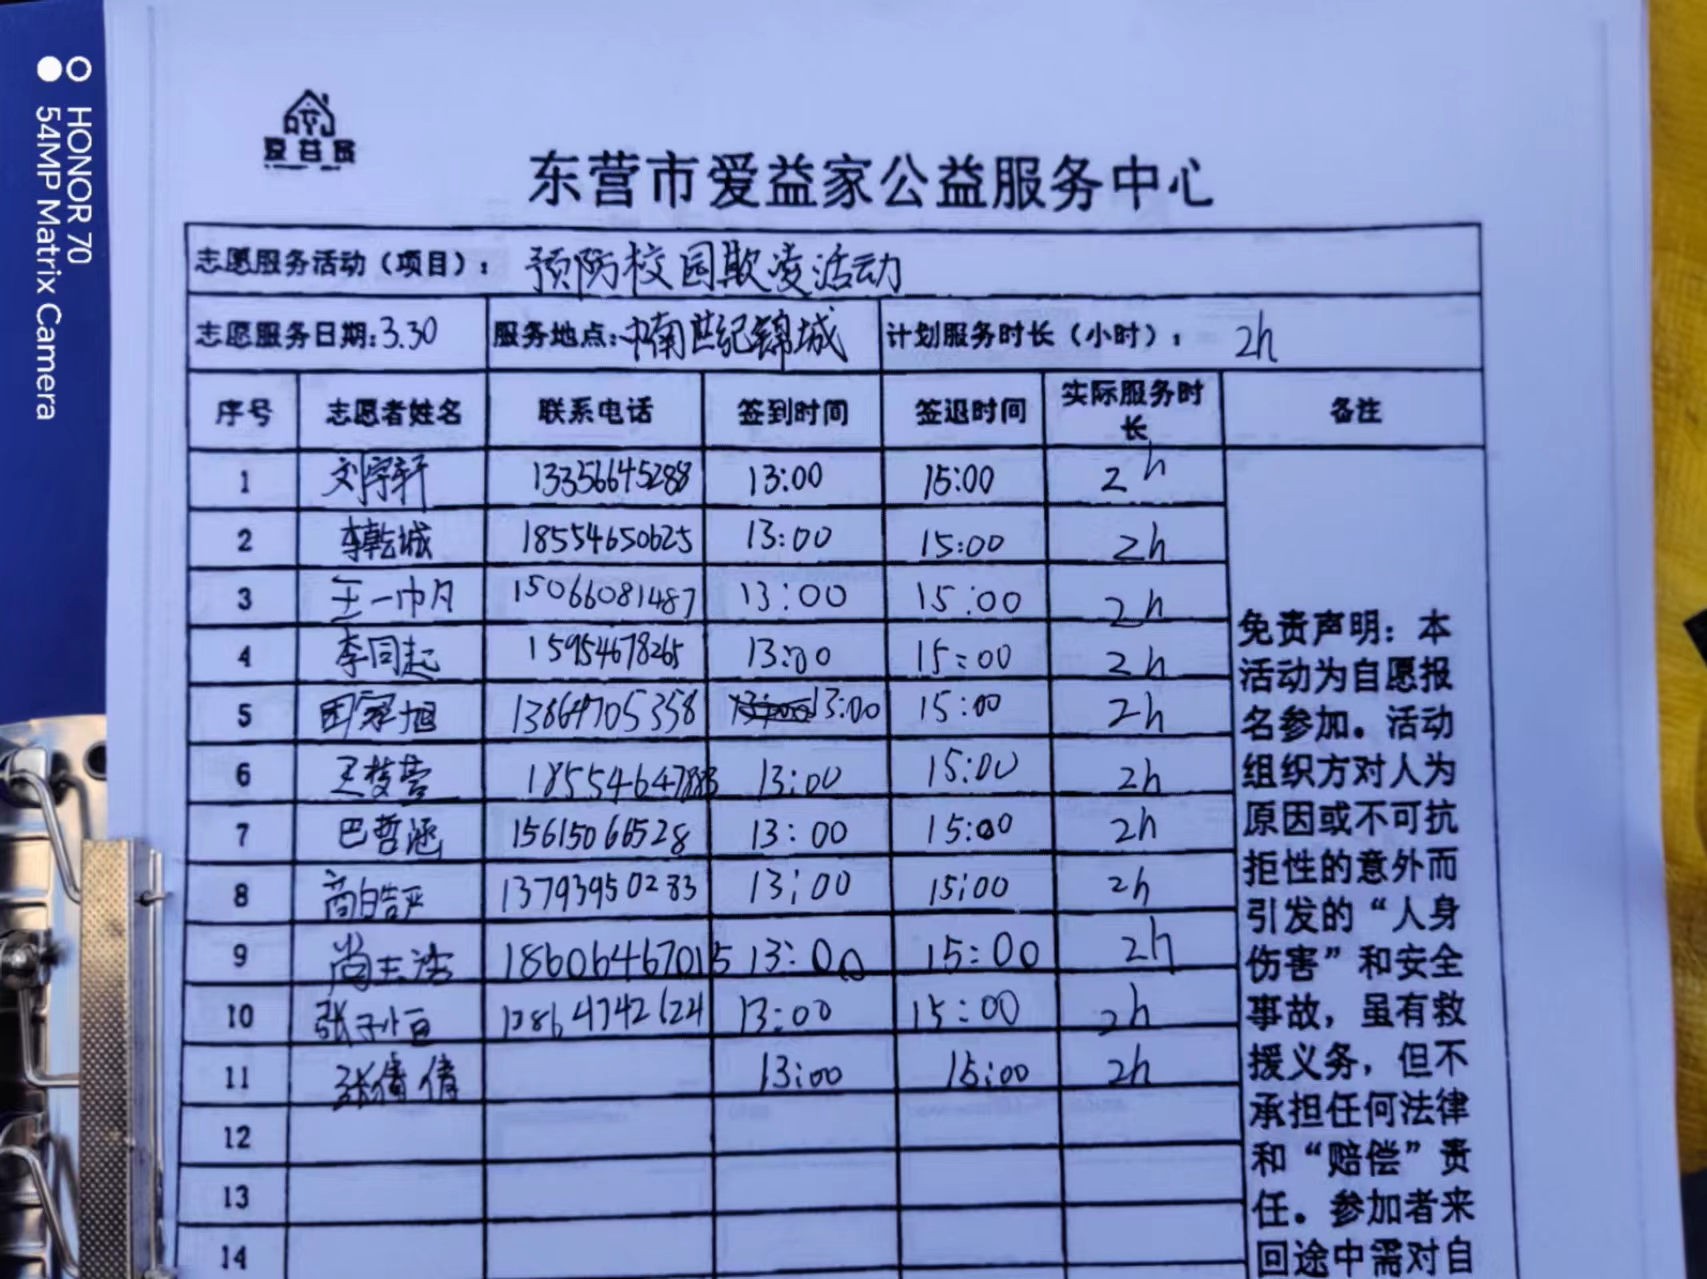 HONOR 70
54MP Matrix Camera
爱益家
东营市爱益家公益服务中心
志愿服务活动（项目）： 预防校园欺凌活动
志愿服务日期:3.30 服务地点:中南世纪锦城 计划服务时长（小时）： 2h
序号 志愿者姓名 联系电话 签到时间 签退时间 实际服务时长 备注
1 刘宇轩 13356645288 13:00 15:00 2h
2 李乾城 18554650625 13:00 15:00 2h
3 王一帆 15066081487 13:00 15:00 2h
4 李同起 15954678265 13:00 15:00 2h
5 13864705358 13:00 15:00 2h
6 13:00 15:00 2h
7 巴哲涵 15615066528 13:00 15:00 2h
8 商皓严 13793950283 13:00 15:00 2h
9 尚玉浩 18606467015 13:00 15:00 2h
10 13864742624 13:00 15:00 2h
11 张倩倩 13:00 15:00 2h
12
13
14
免责声明：本
活动为自愿报
名参加。活动
组织方对人为
原因或不可抗
拒性的意外而
引发的“人身
伤害”和安全
事故，虽有救
援义务，但不
承担任何法律
和“赔偿”责
任。参加者来
回途中需对自